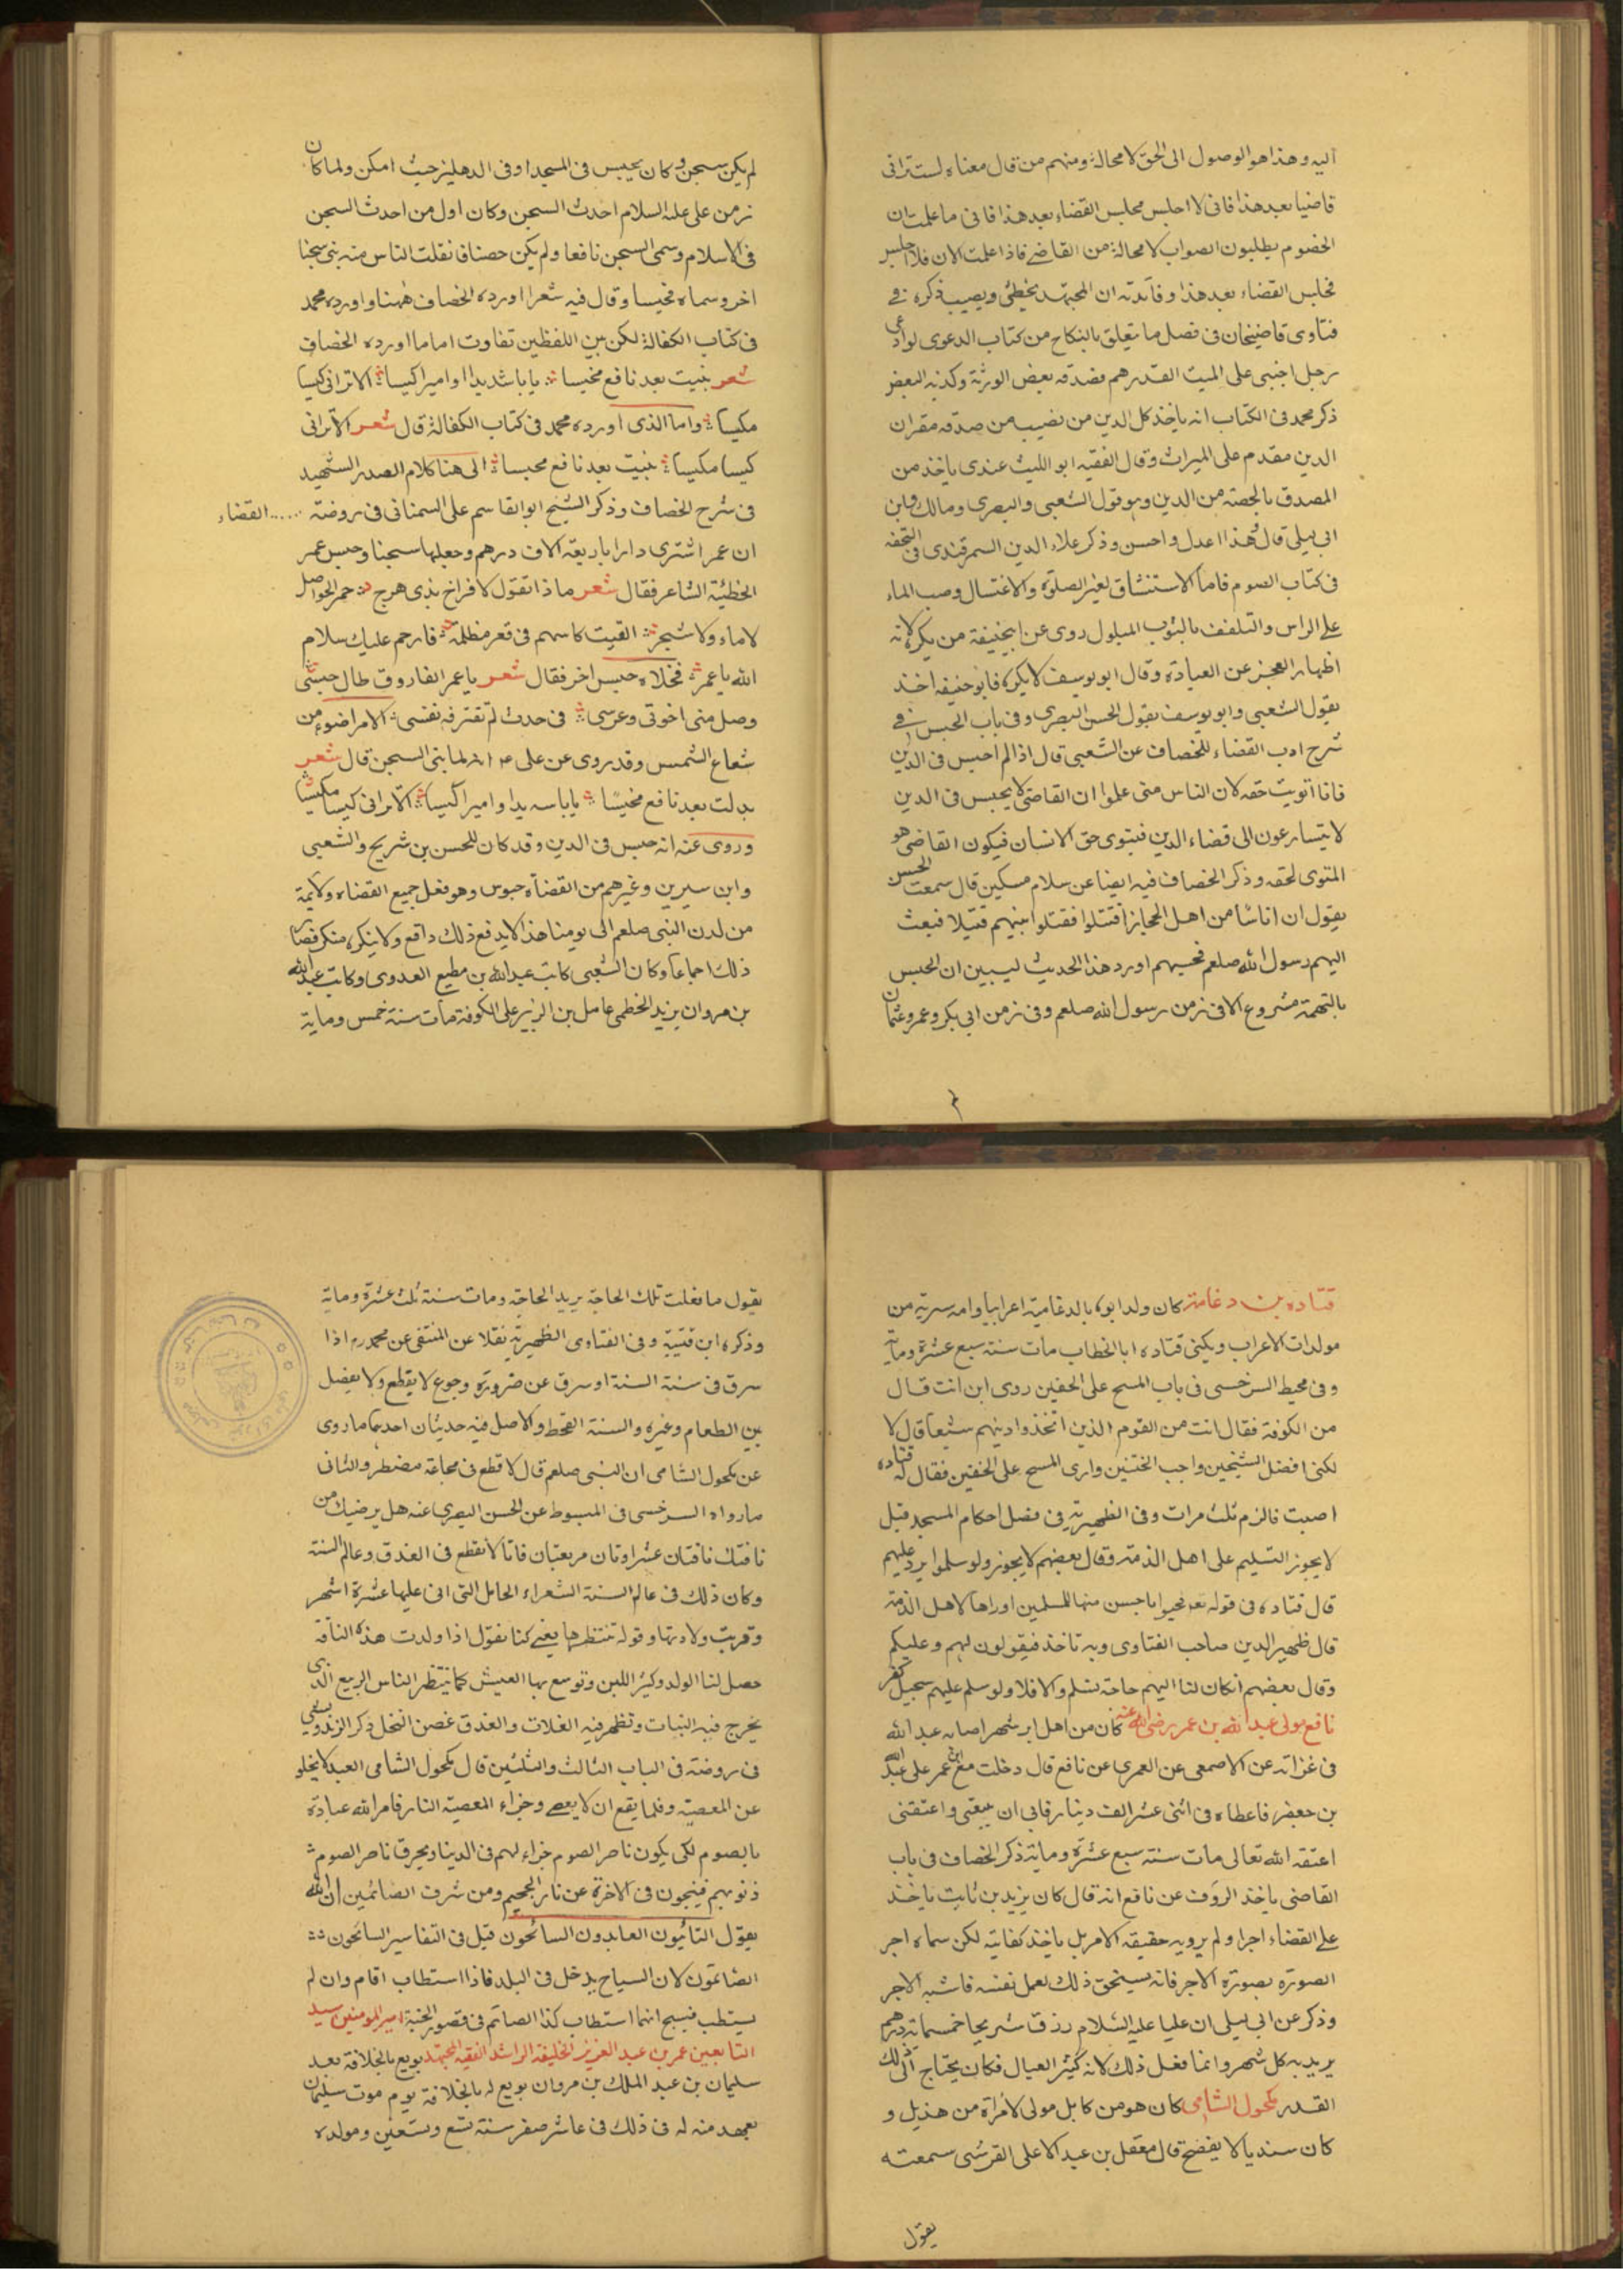 اليه وهذا هو الوصول الى الحق لا محالة ومنهم من قال معناه لست ترانى
قاضيا بعد هذا فانى لا اجلس مجلس القضاء بعد هذا فانى ما علمت ان
الخصوم يطلبون الصواب لا محالة من القاضى فاذا علمت الان فلا اجلس
مجلس القضاء بعد هذا وفائدته ان المجتهد يخطئ ويصيب ذكره فى
فتاوى قاضيخان فى فصل ما يتعلق بالنكاح من كتاب الدعوى لو ادعى
رجل اجنبى على الميت الف درهم فصدقه بعض الورثة وكذبه البعض
ذكر محمد فى الكتاب انه ياخذ كل الدين من نصيب من صدقه مقران
الدين مقدم على الميراث وقال الفقيه ابو الليث عندى ياخذ من
المصدق بالحصة من الدين وهو قول الشعبى والبصرى ومالك وابن
ابى ليلى قال هذا اعدل واحسن وذكر علاء الدين السمرقندى فى التحفه
فى كتاب الصوم فاما الاستنشاق لغير الصلوة والاغتسال وصب الماء
على الراس والتلفف بالثوب المبلول روى عن ابيحنيفة من يكره لانه
اظهار العجز عن العبادة وقال ابو يوسف لا يكره فابو حنيفه اخذ
بقول الشعبى وابو يوسف بقول الحسن البصرى وفى باب الحبس فى
شرح ادب القضاء للخصاف عن الشعبى قال اذا لم احبس فى الدين
فانا اتويت حقه لان الناس متى علموا ان القاضى لا يحبس فى الدين
لا يتسارعون الى قضاء الدين فيتوى حق الانسان فيكون القاضى هو
المتوى لحقه وذكر الخصاف فيه ايضا عن سلام مسكين قال سمعت الحسن
يقول ان اناسا من اهل الحجاز اقتتلوا فقتلوا بينهم قتيلا فبعث
اليهم رسول الله صلعم فحبسهم اورد هذا الحديث ليبين ان الحبس
بالتهمة مشروع الا فى زمن رسول الله صلعم وفى زمن ابى بكر وعمر وعثمان
لم يكن سجن وكان يحبس فى المسجد او فى الدهليز حيث امكن ولما كان
زمن على عليه السلام احدث السجن وكان اول من احدث السجن
فى الاسلام وسمى السجن نافعا ولم يكن حصنا فانفلت الناس منه بنى سجنا
اخر وسماه مخيسا وقال فيه شعرا اورده الخصاف ههنا واورده محمد
فى كتاب الكفالة لكن بين اللفظين تفاوت اما ما اورده الخصاف
شعر بنيت بعد نافع مخيسا يا بابا شديدا واميرا كيسا الا ترانى كيسا
مكيسا واما الذى اورده محمد فى كتاب الكفالة قال شعر الا ترانى
كيسا مكيسا بنيت بعد نافع محبسا الى هنا كلام الصدر الشهيد
فى شرح الخصاف وذكر الشيخ ابو القاسم على السمنانى فى روضة ...... القضاء
ان عمر اشترى دارا باربعة الاف درهم وجعلها سجنا وحبس عمر
الحطيئة الشاعر فقال شعر ما ذا تقول لافراخ بذى هرج حمر الحواصل
لا ماء ولا شجر القيت كاسهم فى قعر مظلمة فارحم عليك سلام
الله يا عمر فخلاه حبس اخر فقال شعر يا عمر الفاروق طال حبسى
وصل منى اخوتى وعرسى فى حدث لم تقترفه نفسى الامر اضوء من
شعاع الشمس وقد روى عن على انه لما بنى السجن قال شعر
بدلت بعد نافع مخيسا يا بابا واميرا كيسا الا ترانى كيسا مكيسا
وروى عنه انه حبس فى الدين وقد كان للحسن بن شريح والشعبى
وابن سيرين وغيرهم من القضاة حبوس وهو فعل جميع القضاه ولايمة
من لدن النبى صلعم الى يومنا هذا لا يدفع ذلك دافع ولا ينكره منكر فصار
ذلك اجماعا وكان الشعبى كاتب عبد الله بن مطيع العدوى وكاتب عبد الله
بن مروان يزيد الخطمى عامل بن الزبير على الكوفة مات سنة خمس وماية
قتاده بن دغامة كان ولد ابوه بالدغامية اعرابيا وامه سرية من
مولدات الاعراب ويكنى قتاده ابا الخطاب مات سنة سبع عشرة وماية
وفى محيط السرخسى فى باب المسح على الخفين روى ابن انت قال
من الكوفة فقال انت من القوم الذين اتخذوا دينهم شيعا قال لا
لكنى افضل الشيخين واحب الختنين وارى المسح على الخفين فقال له قتاده
اصبت فالزم ثلث مرات وفى الظهيرية فى فصل احكام المسجد قيل
لا يجوز التسليم على اهل الذمة وقال بعضهم لا يجوز ولو سلموا يرد عليهم
قال قتاده فى قوله تعه فحيوا باحسن منها للمسلمين او ردها لاهل الذمة
قال ظهير الدين صاحب الفتاوى وبه ناخذ فيقولون لهم وعليكم
وقال بعضهم انكان لنا اليهم حاجة نسلم والا فلا ولو سلم عليهم يبجيل كفر
نافع مولى عبد الله بن عمر رضى الله عنه كان من اهل ابرشهر اصابه عبد الله
فى غزاته عن الاصمعى عن العمرى عن نافع قال دخلت مع ابن عمر على عبد الله
بن جعفر فاعطاه فى اثنى عشر الف دينار فابى ان يبيعنى واعتقنى
اعتقه الله تعالى مات سنة سبع عشرة وماية ذكر الخصاف فى باب
القاضى ياخذ الرزق عن نافع انه قال كان يزيد بن ثابت ياخذ
على القضاء اجرا ولم يرو به حقيقه الامر بل ياخذ كفايته لكن سماه اجر
الصورة بصورة الاجر فانه يستحق ذلك بعمل نفسه فاشبه الاجر
وذكر عن ابى ليلى ان عليا عليه السلام رزق شريحا خمسماية درهم
يريد به كل شهر وانما فعل ذلك لانه كثير العيال فكان يحتاج الى ذلك
القدر مكحول الشامى كان هو من كابل مولى لامراة من هذيل و
كان سنديا لا يفصح قال معقل بن عبد الاعلى القرشى سمعته
يقول
يقول ما فعلت تلك الحاجة يريد الحاجة ومات سنة ثلث عشرة وماية
وذكره ابن قتيبة وفى الفتاوى الظهيرية نقلا عن المنتقى عن محمد رم اذا
سرق فى سنة السنة او سرق عن ضرورة وجوع لا يقطع ولا يفصل
بين الطعام وغيره والسنة القحط والاصل فيه حديثان احدهما ما روى
عن مكحول الشامى ان النبى صلعم قال لا قطع فى مجاعة مضطر والثانى
ما رواه السرخسى فى المبسوط عن الحسن البصرى عنه هل يرضيك من
ناقتك ناقتان عشراوتان مربعتان فانا لا نقطع فى العذق وعالم السنة
وكان ذلك فى عالم السنة الشعراء الحامل التى اتى عليها عشرة اشهر
وقربت ولادتها وقوله تنتظرها يعنى كنا نقول اذا ولدت هذه الناقة
حصل لنا الولد وكثر اللبن وتوسع بها العيش كما ينتظر الناس الربيع الذى
يخرج فيه النبات وتظهر فيه الغلات والعذق غصن النخل ذكر الزندويستى
فى روضة فى الباب الثالث والثلثين قال مكحول الشامى العبد لا يخلو
عن المعصية وقلما يقع ان لا يعصى وجزاء المعصية النار فامر الله عباده
بالصوم لكى يكون ناصر الصوم جزاء لهم فى الدنيا ويحرق ناصر الصوم
ذنوبهم فينجون فى الاخرة عن نار الجحيم ومن شرف الصائمين ان الله
يقول التائبون العابدون السائحون قيل فى التفاسير السائحون
الصائمون لان السياح يدخل فى البلد فاذا استطاب اقام وان لم
يستطب فيسيح اينما استطاب كذا الصائم فى قصور الجنة امير المومنين سيد
التابعين عمر بن عبد العزيز الخليفة الراشد الفقيه المجتهد بويع بالخلافة بعد
سليمان بن عبد الملك بن مروان بويع له بالخلافة يوم موت سليمان
بعهد منه له فى ذلك فى عاشر صفر سنة تسع وتسعين ومولده